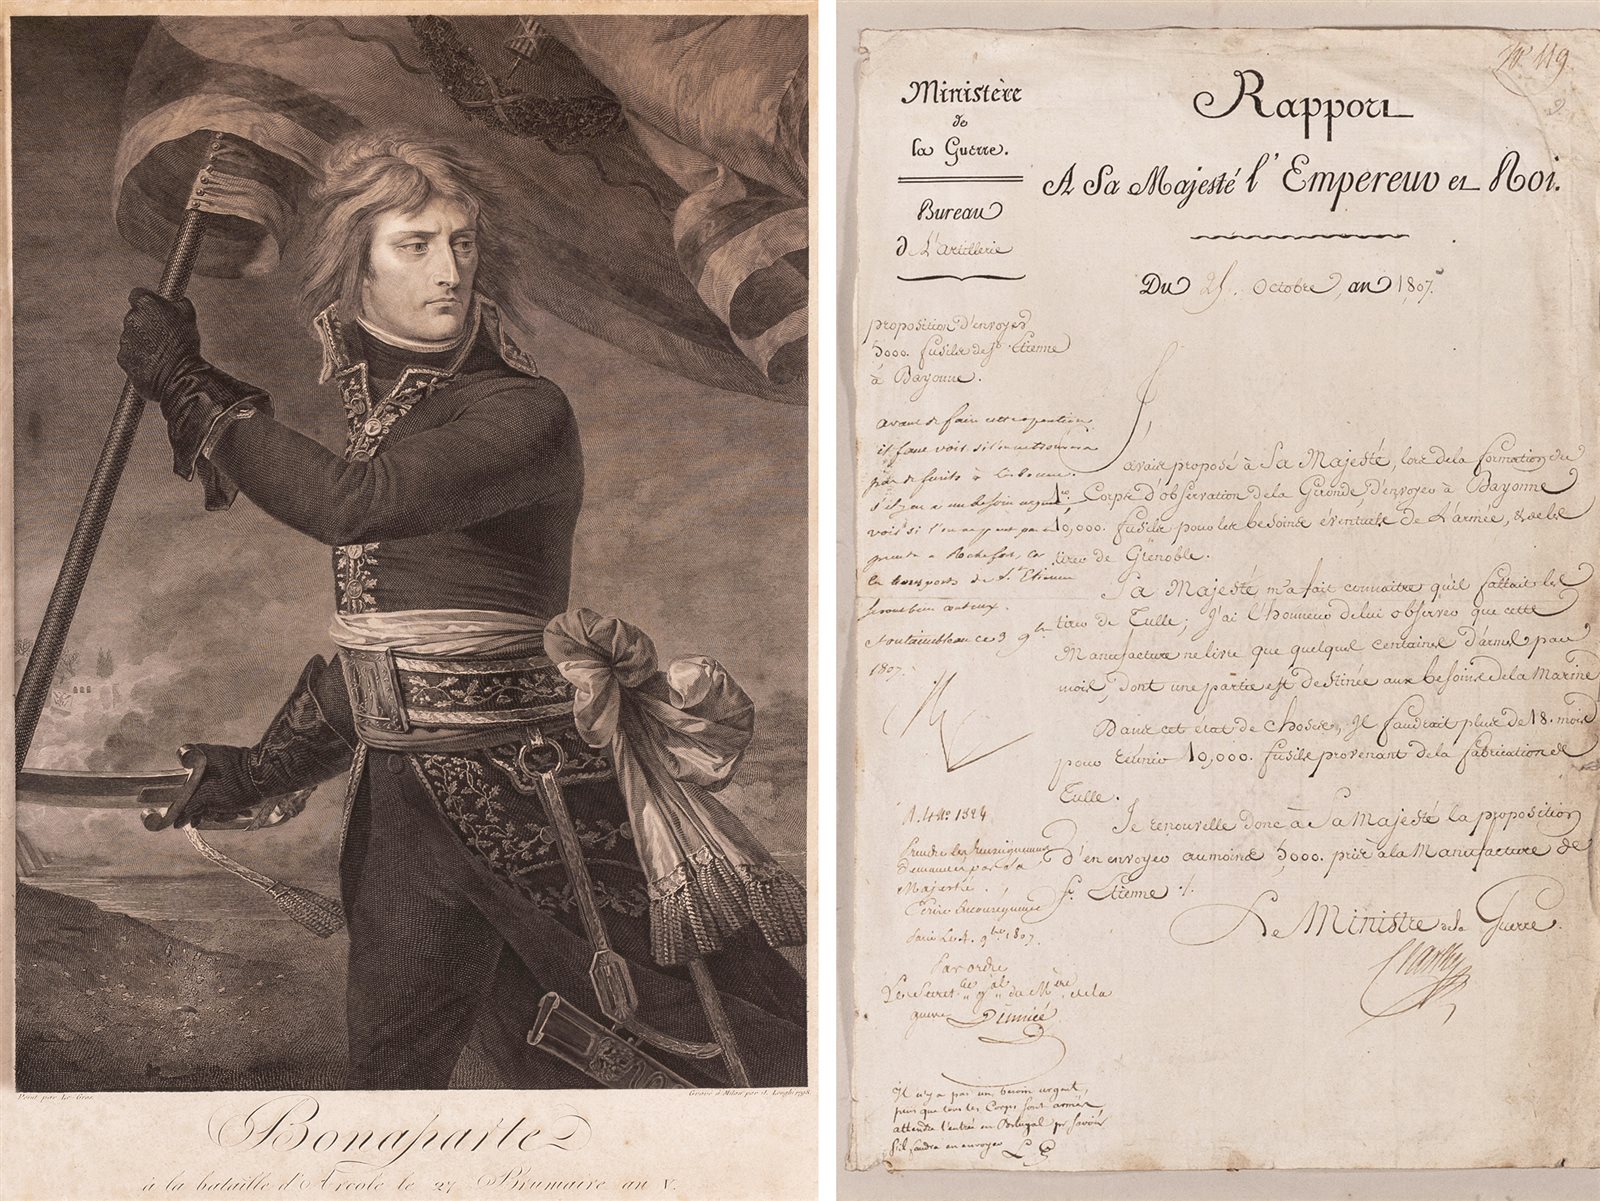 Peint par Le Gros
Gravé à Milan par J. Longhi 1798.
Bonaparte
à la bataille d'Arcole le 27 Brumaire an V.
N° 119.
2.
Ministère
de
la Guerre.
Bureau
de L'Artillerie
Rapport
A Sa Majesté l'Empereur et Roi.
Du 25. Octobre, an 1807.
proposition d'envoyer
5000. fusils de St. Etienne
à Bayonne.
avant de faire cette
il faut voir s'il
s'il y en a un besoin urgent
voir si l'on ne peut pas
prendre à Rochefort, car
les transports de St. Etienne
seront bien coûteux.
Fontainebleau ce 3 9bre
1807.
J'avais proposé à Sa Majesté, lors de la formation du
1er. Corps d'observation de la Gironde d'envoyer à Bayonne
10,000. fusils pour les besoins éventuels de l'armée, & de les
tirer de Grenoble.
Sa Majesté m'a fait connaitre qu'il fallait les
tirer de Tulle; J'ai l'honneur de lui observer que cette
Manufacture ne livre que quelques centaines d'armes par
mois, dont une partie est destinée aux besoins de la Marine
Dans cet état de choses, Il faudrait plus de 18. mois
pour réunir 10,000. fusils provenant de la fabrication de
Tulle.
Je renouvelle donc à Sa Majesté la proposition
d'en envoyer au moins 5,000. pris à la Manufacture de
St. Etienne ./.
Le Ministre de la Guerre.
Clarke
Prendre les Renseignemens
Demandés par Sa
Majesté.
Ecrire
Paris Le 4. 9bre 1807.
Par ordre
Le Secret. gal du Mère de la
guerre
Il n'y a pas un besoin urgent,
puis que tous les Corps sont armés
attendre l'entrée en Portugal pr savoir
s'il faudra en envoyer